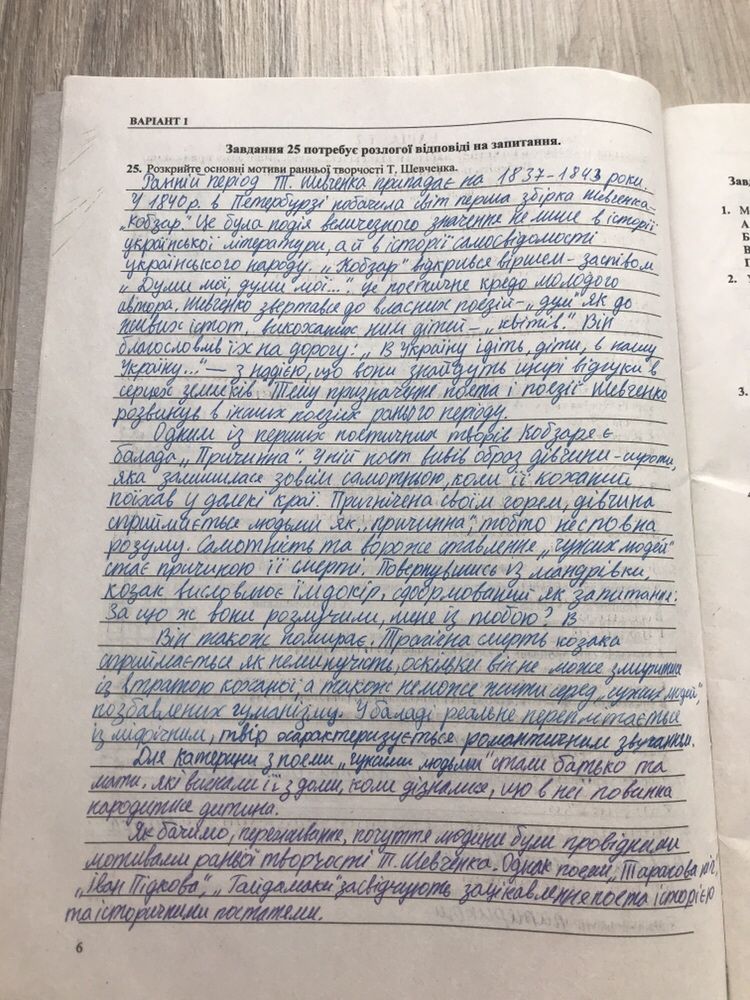 ВАРІАНТ 1
Завдання 25 потребує розлогої відповіді на запитання.
25. Розкрийте основні мотиви ранньої творчості Т. Шевченка.
Ранній період Т. Шевченка припадає на 1837-1843 роки.
У 1840 р. в Петербурзі побачила світ перша збірка Шевченка-
"Кобзар". Це була подія величезного значення не лише в історії
української літератури, а й в історії самосвідомості
українського народу. "Кобзар" відкрився віршем-заспівом
"Думи мої, думи мої...", це поетичне кредо молодого
автора. Шевченко звертався до власних поезій-"дум" як до
живих істот, викоханих ним дітей-"квітів". Він
благословив їх на дорогу: "В Україну ідіть, діти, в нашу
Україну..." - з надією, що вони знайдуть щирі відгуки в
серцях земляків. Тему призначення поета і поезії Шевченко
розвинув в інших поезіях раннього періоду.
Одним із перших поетичних творів Кобзаря є
балада "Причинна". У ній поет вивів образ дівчини-сироти,
яка залишилася зовсім самотньою, коли її коханий
поїхав у далекі краї. Пригнічена своїм горем, дівчина
сприймається людьми як "причинна", тобто несповна
розуму. Самотність та вороже ставлення "чужих людей"
стає причиною її смерті. Повернувшись із мандрівки,
козак висловлює їм докір, сформований як запитання:
За що ж вони розлучили, мене із тобою? В
Він також помирає. Трагічна смерть козака
сприймається як неминучість, оскільки він не може змиритися
із втратою коханої, а також не може жити серед "чужих людей",
позбавлених гуманізму. У баладі реальне переплітається
із міфічним, твір характеризується романтичним звучанням.
Для Катерини з поеми "чужими людьми" стали батько та
мати, які вигнали її з дому, коли дізналися, що в неї повинна
народитися дитина.
Як бачимо, переживання, почуття людини були провідними
мотивами ранньої творчості Т. Шевченка. Однак поеми "Тарасова ніч",
"Іван Підкова", "Гайдамаки" засвідчують зацікавлення поета історією
та історичними постатями.
6
Зав
1. М
А
Б
В
Г
2.
3.